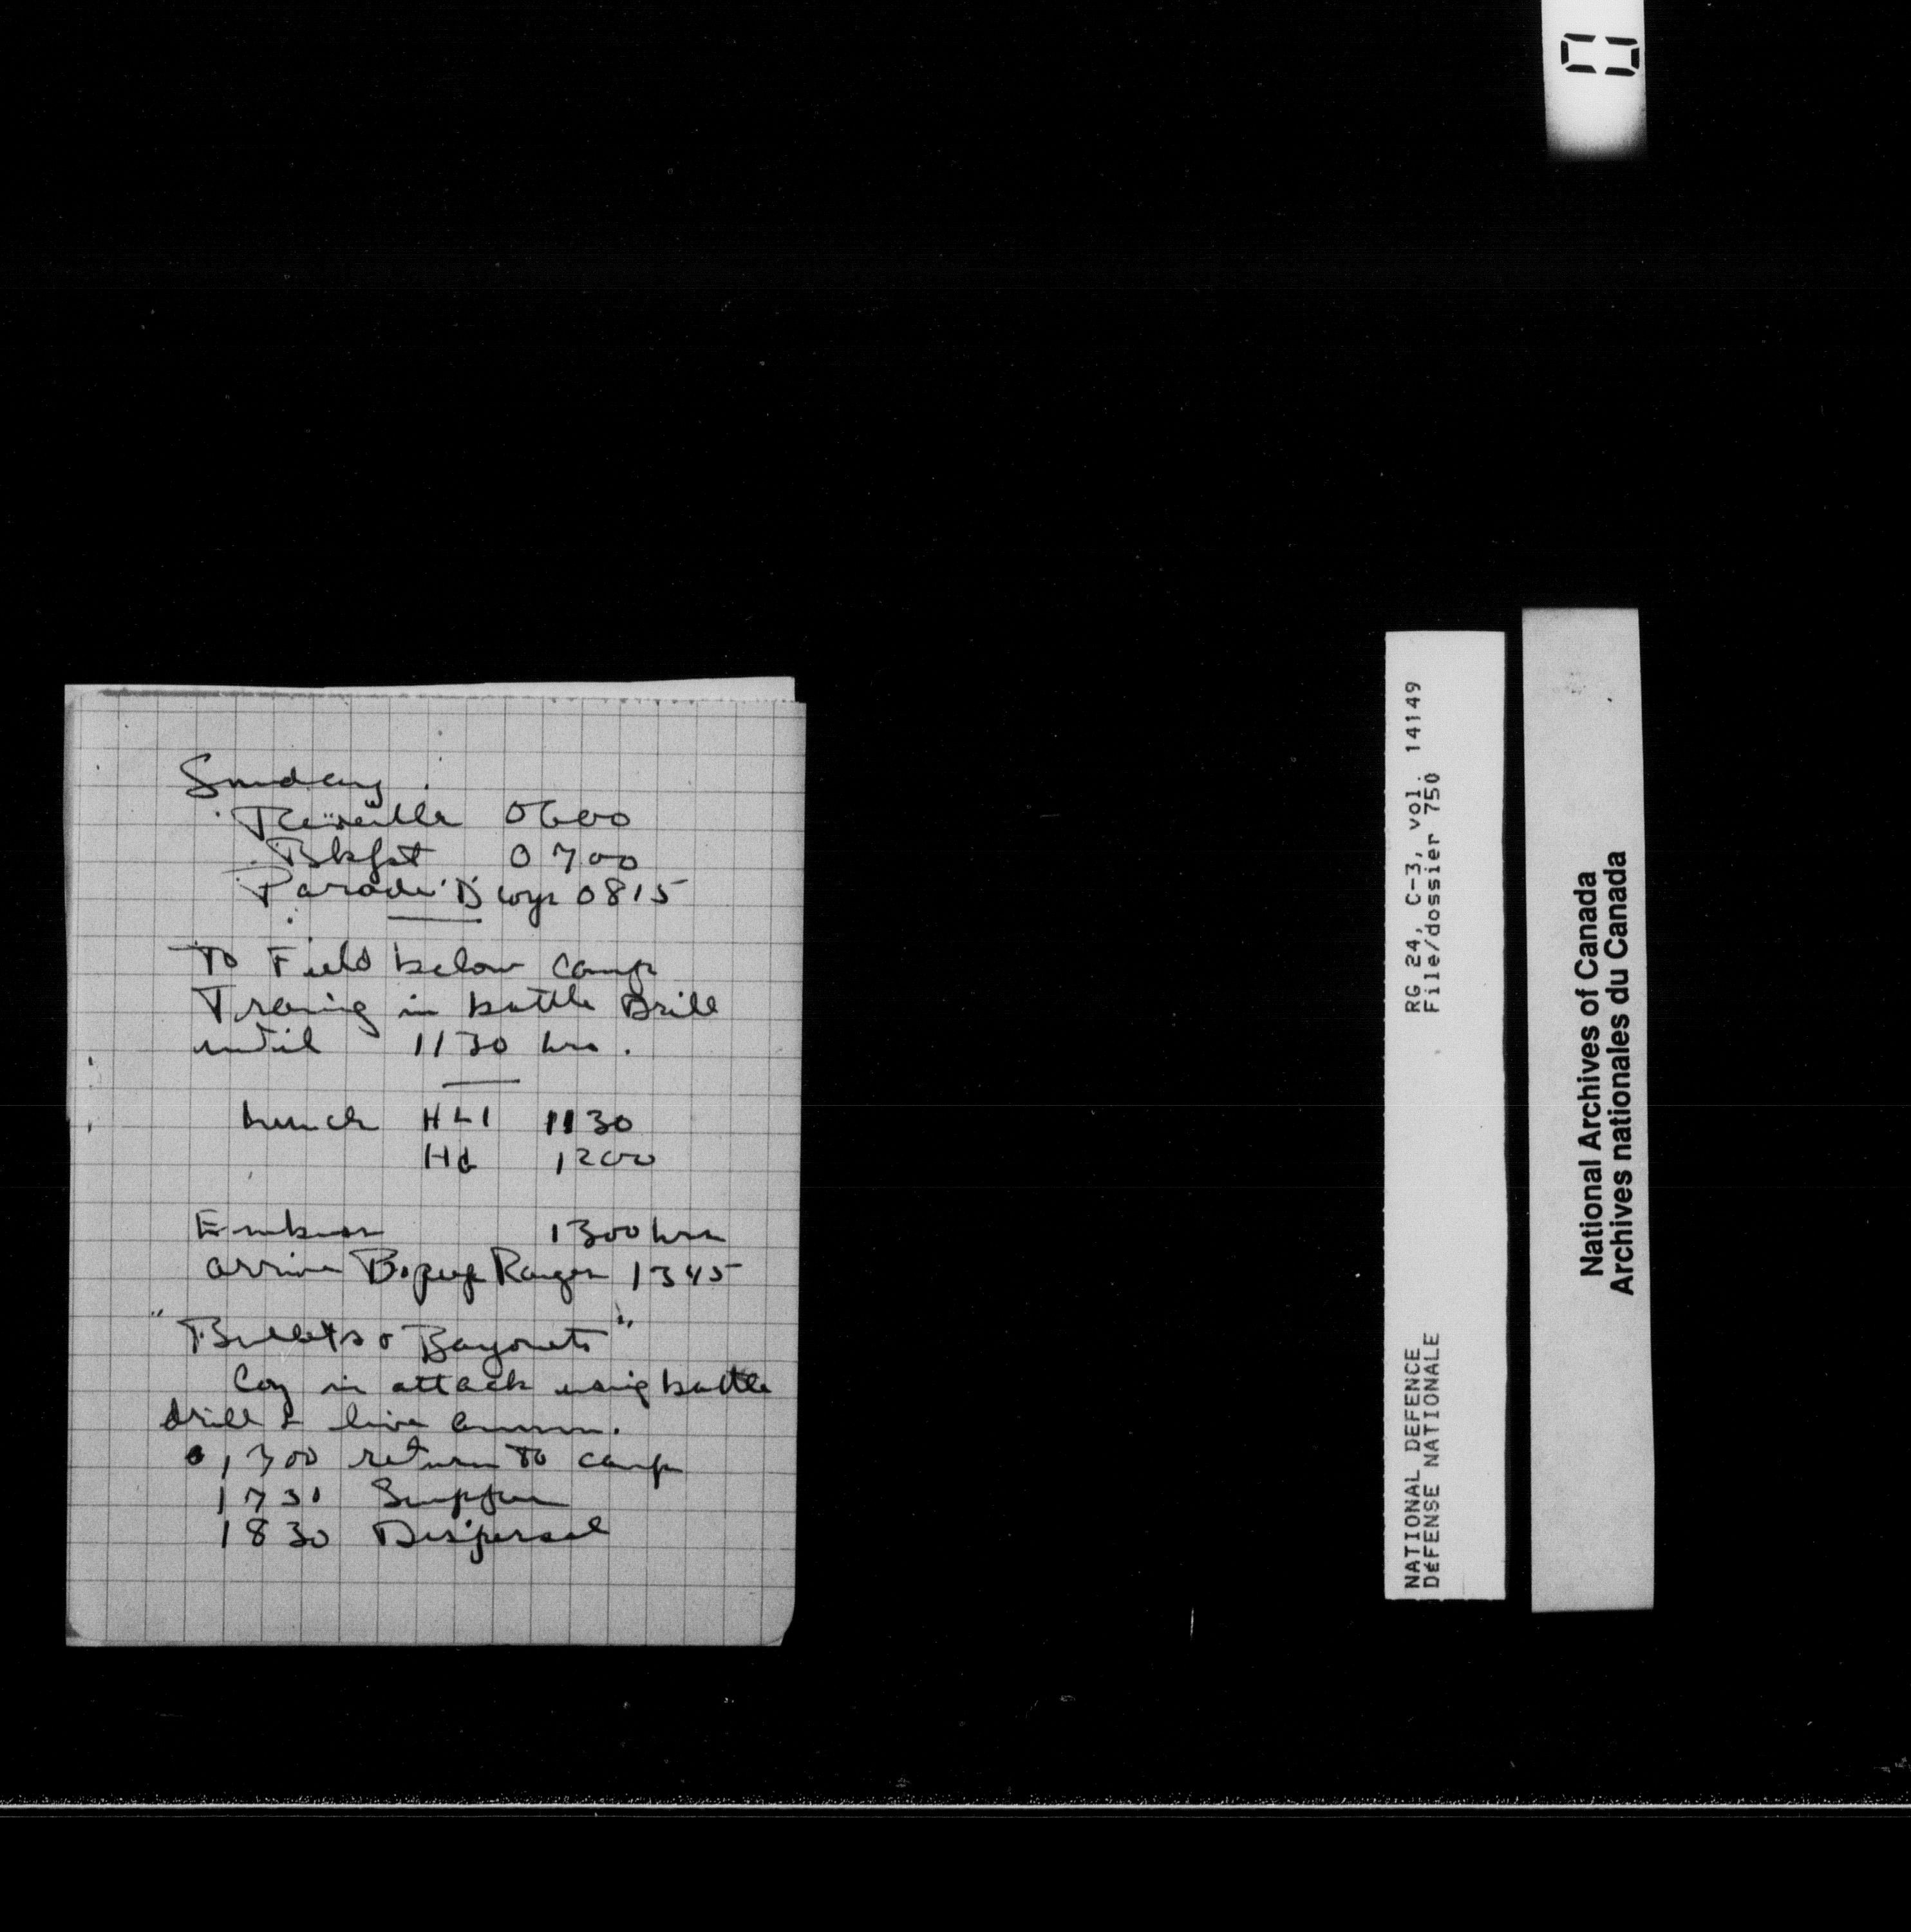 Sunday
Reveille 0600
Bkfst 0700
Parade 'D' Coys 0815
To Field below camp
Traning in battle Drill
until 1130 hrs.
Lunch HLI 1130
1200
Embuss 1300 hrs
arrive Bopeep Ranges 1345
"Bullets & Bayonets"
Coy in attack using battle
drill & live ammn.
1700 return to camp
1730 Supper
1830 Dispersal
RG 24, C-3, vol. 14149
File/dossier 750
NATIONAL DEFENCE
DéFENSE NATIONALE
National Archives of Canada
Archives nationales du Canada